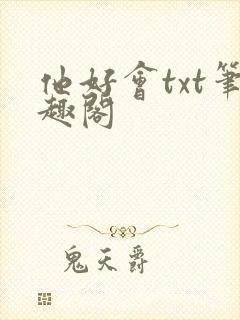 他好會txt筆
趣閣
鬼天爵